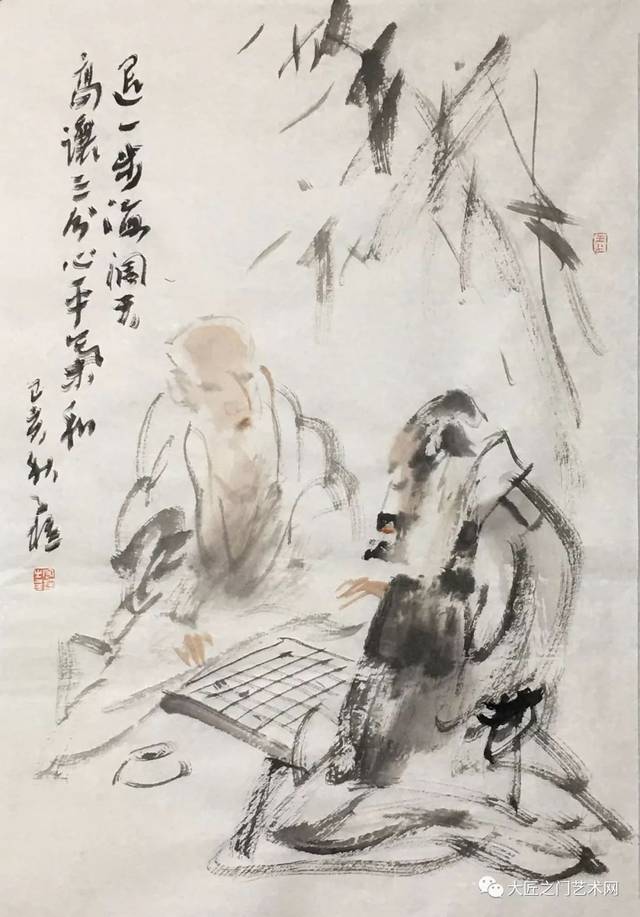 退一步海阔天
高讓三分心平氣和
己亥秋
大匠之门艺术网